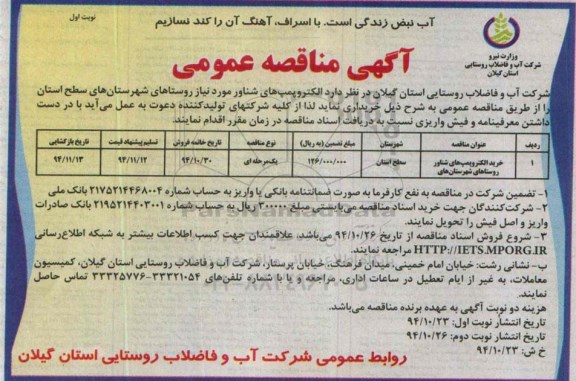 آب نبض زندگی است. با اسراف، آهنگ آن را کند نسازیم
نوبت اول
وزارت نیرو
شرکت آب و فاضلاب روستایی
استان گیلان
آگهی مناقصه عمومی
شرکت آب و فاضلاب روستایی استان گیلان در نظر دارد الکتروپمپ‌های شناور مورد نیاز روستاهای شهرستان‌های سطح استان
را از طریق مناقصه عمومی به شرح ذیل خریداری نماید لذا از کلیه شرکتهای تولیدکننده دعوت به عمل می‌آید با در دست
داشتن معرفینامه و فیش واریزی نسبت به دریافت اسناد مناقصه در زمان مقرر اقدام نمایند.
ردیف عنوان مناقصه شهرستان مبلغ تضمین (به ریال) نوع مناقصه تاریخ خاتمه فروش تسلیم پیشنهاد قیمت تاریخ بازگشایی
۱ خرید الکتروپمپ‌های شناور روستاهای شهرستان‌های سطح استان ۱۴۶/۰۰۰/۰۰۰ یک‌مرحله‌ای ۹۴/۱۰/۳۰ ۹۴/۱۱/۱۲ ۹۴/۱۱/۱۳
۱- تضمین شرکت در مناقصه به نفع کارفرما به صورت ضمانتنامه بانکی یا واریز به حساب شماره ۲۱۷۵۲۱۴۴۶۸۰۰۴ بانک ملی
۲- شرکت‌کنندگان جهت خرید اسناد مناقصه می‌بایستی مبلغ ۳۰۰۰۰۰ ریال به حساب شماره ۲۱۹۵۲۱۴۴۰۳۰۰۱ بانک صادرات
واریز و اصل فیش را تحویل نمایند.
۳- شروع فروش اسناد مناقصه از تاریخ ۹۴/۱۰/۲۶ می‌باشد. علاقمندان جهت کسب اطلاعات بیشتر به شبکه اطلاع‌رسانی
HTTP://IETS.MPORG.IR مراجعه نمایند.
ب- نشانی: رشت: خیابان امام خمینی، میدان فرهنگ، خیابان پرستار، شرکت آب و فاضلاب روستایی استان گیلان، کمیسیون
معاملات، به غیر از ایام تعطیل در ساعات اداری، مراجعه و یا با شماره تلفن‌های ۳۳۳۲۱۰۵۴-۳۳۳۲۵۷۷۶ تماس حاصل
نمایند.
هزینه دو نوبت آگهی به عهده برنده مناقصه می‌باشد.
تاریخ انتشار نوبت اول: ۹۴/۱۰/۲۳
تاریخ انتشار نوبت دوم: ۹۴/۱۰/۲۶
خ ش: ۹۴/۱۰/۲۳
روابط عمومی شرکت آب و فاضلاب روستایی استان گیلان